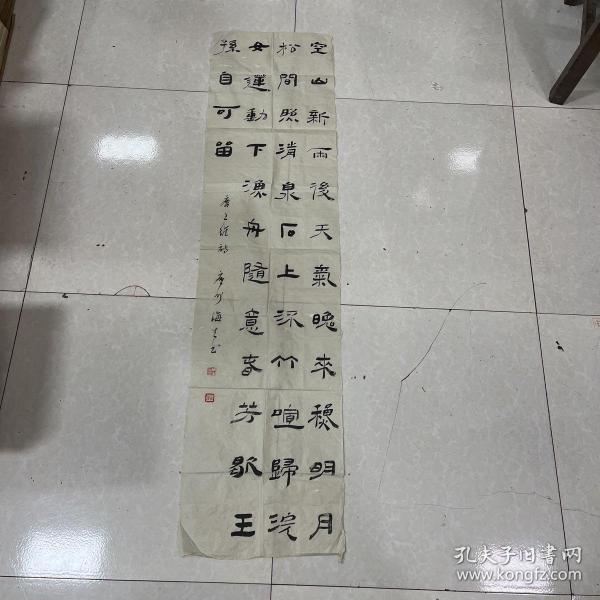 空山新雨後天氣晚來穐明月
松間照清泉石上流竹喧歸浣
女蓮動下漁舟隨意春芳歇王
孫自可留
唐王維詩 海 书
孔夫子旧书网
www.kongfz.com